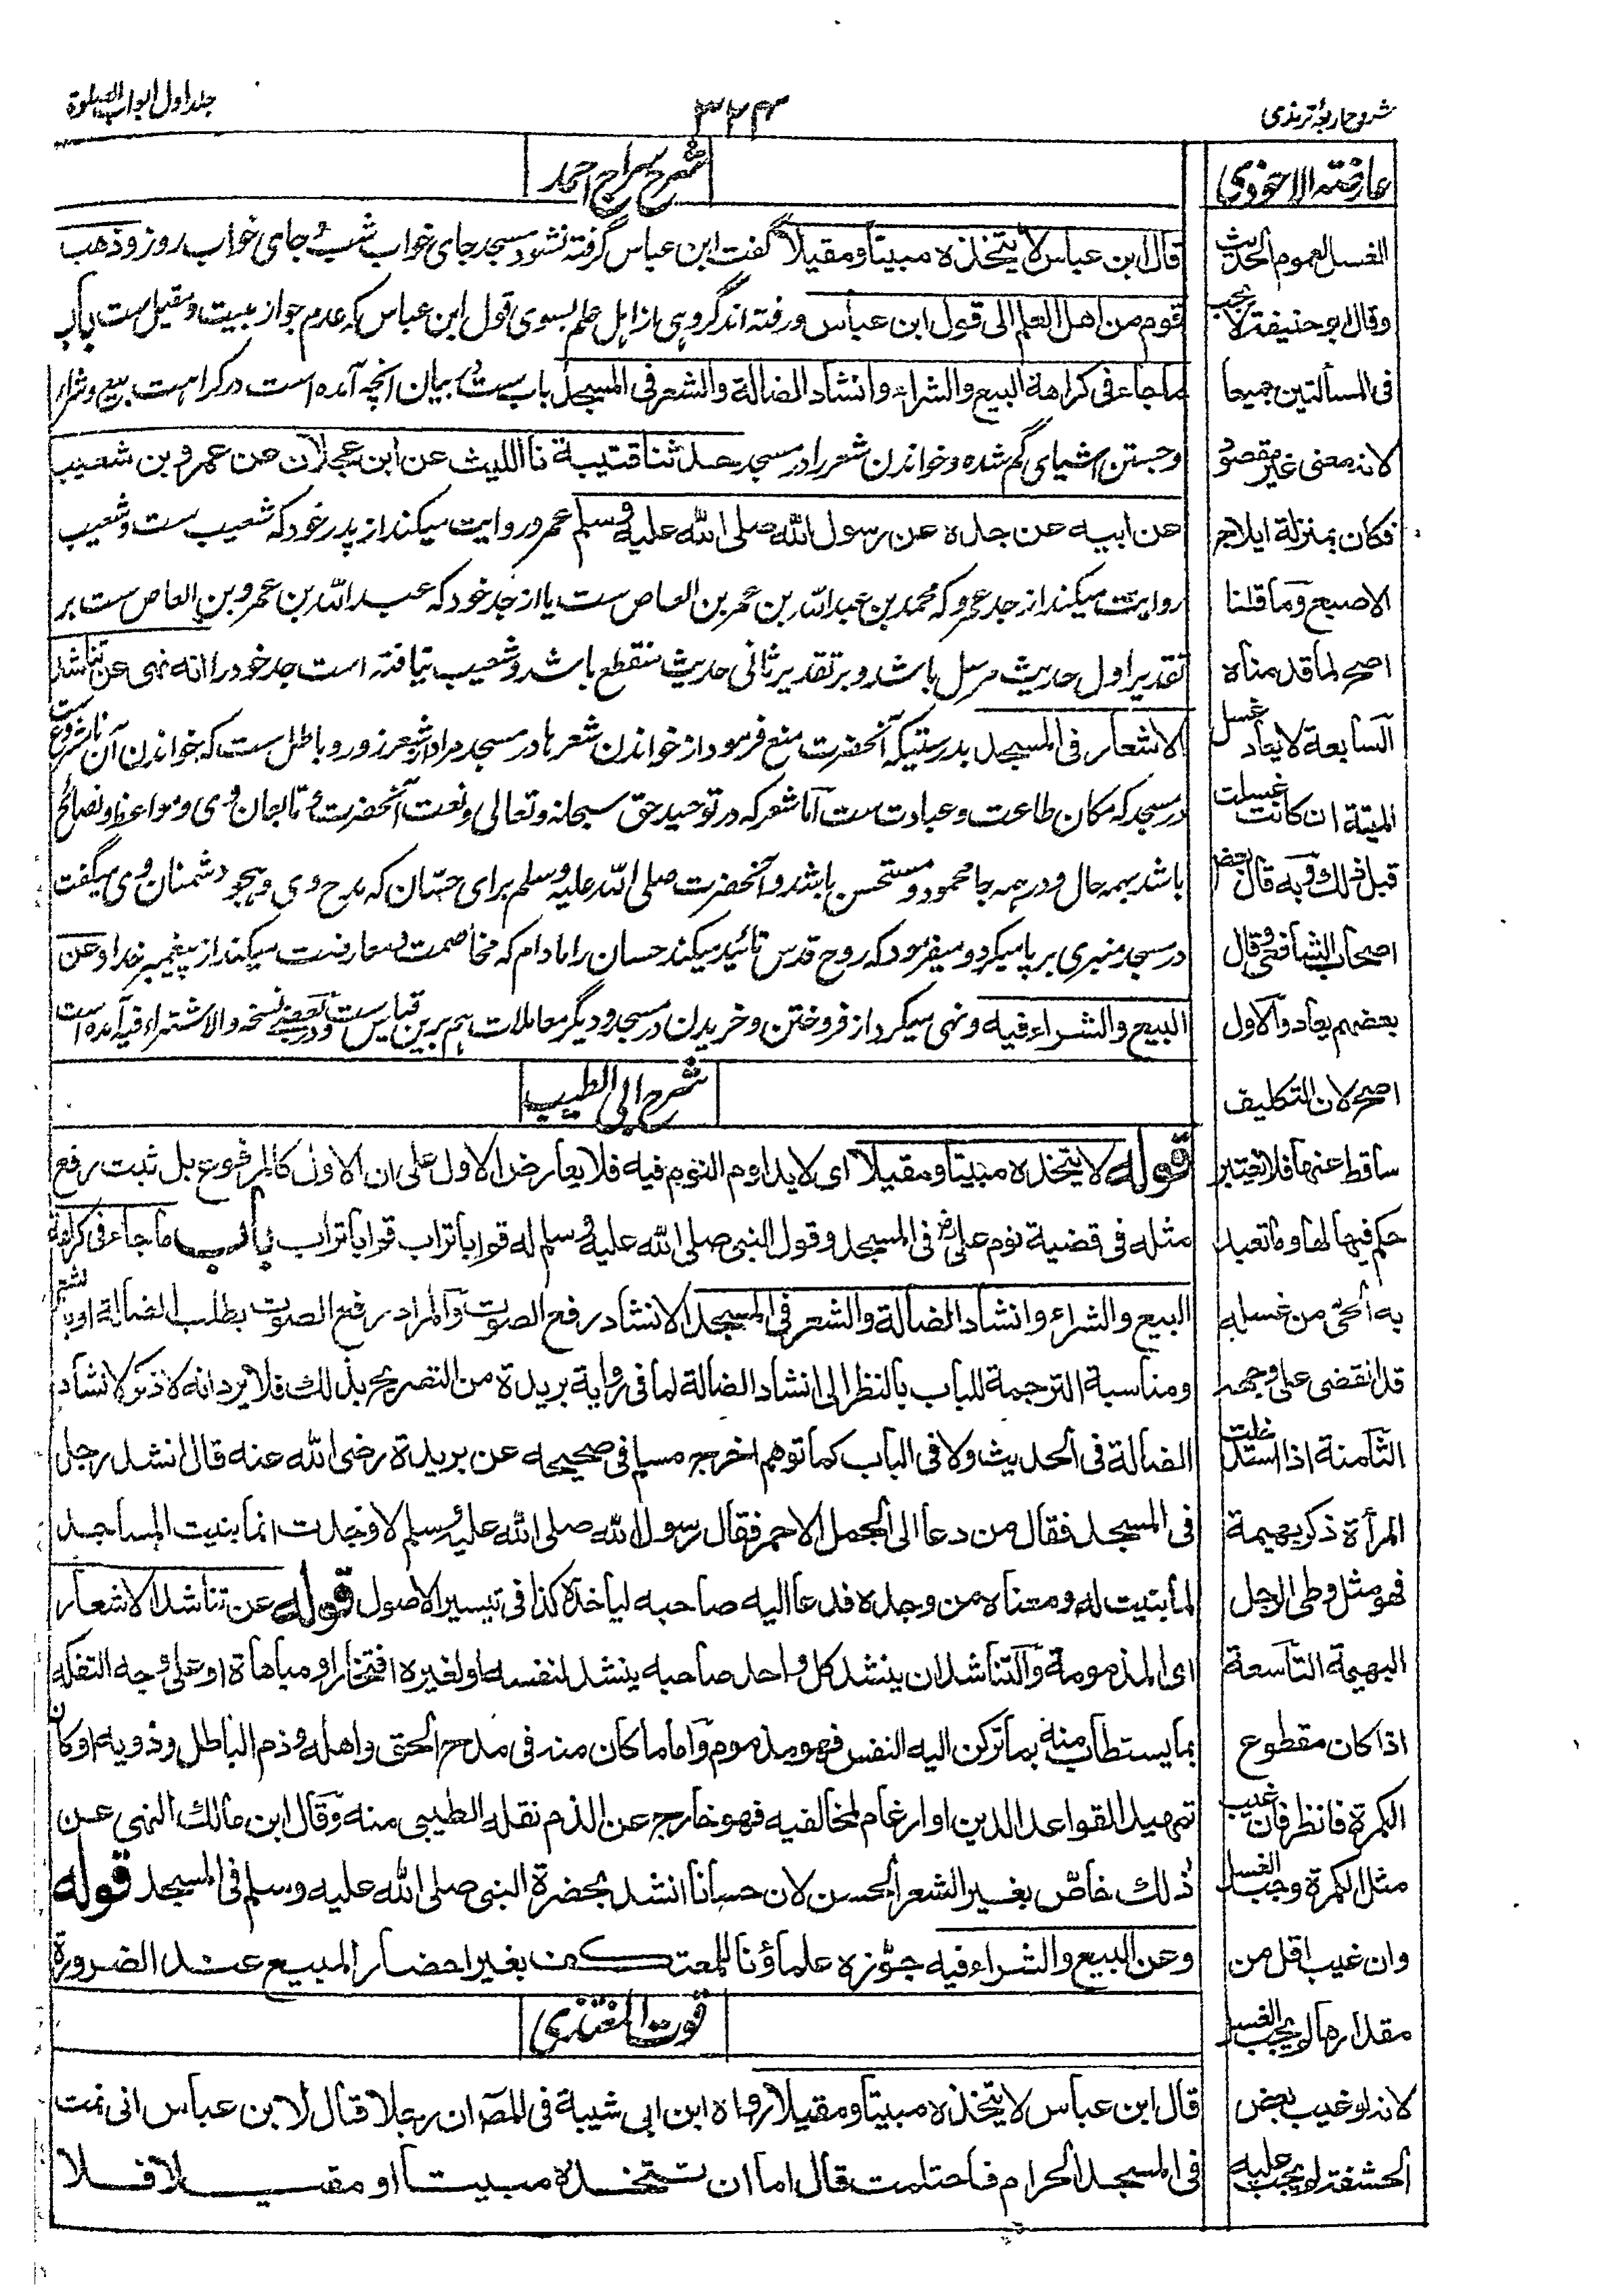 شروح اربعۂ ترمذی
۳۳۴
جلد اول ابواب الصلوة
شرح سراج احمد
قال ابن عباس لا يتخذه مبيتا ومقيلا گفت ابن عباس گرفته نشود مسجد جای خواب شب و جای خواب روز وذهب
قوم من اهل العلم الى قول ابن عباس ورفته اند گروهی از اهل علم بسوی قول ابن عباس که عدم جواز مبیت ومقیل ست باب
ما جاء فى كراهة البيع والشراء وانشاد الضالة والشعر فى المسجد باب ست در بیان آنچه آمده است در کراهت بیع وشراء
وجستن اشیای گم شده وخواندن شعر را در مسجد حدثنا قتيبة نا الليث عن ابن عجلان عن عمرو بن شعيب
عن ابيه عن جده عن رسول الله صلى الله عليه وسلم عمرو روایت میکند از پدر خود که شعیب ست وشعیب
روایت میکند از جد عمرو که محمد بن عبد الله بن عمر بن العاص ست یا از جد خود که عبد الله بن عمرو بن العاص ست بر
تقدیر اول حدیث مرسل باشد و بر تقدیر ثانی حدیث منقطع باشد وشعیب نیافته است جد خود را انه نهى عن تناشد
الاشعار فى المسجد بدرستیکه آنحضرت منع فرمود از خواندن شعرها در مسجد مراد شعر زور و باطل ست که خواندن آن نامشروع ست
در مسجد که مکان طاعت وعبادت ست اما شعر که در توحید حق سبحانه وتعالی ونعت آنحضرت و تابعان وی ومواعظ ونصائح
باشد بهمه حال و در همه جا محمود و مستحسن باشد وآنحضرت صلی الله علیه وسلم برای حسّان که مدح وی و هجو دشمنان وی میگفت
در مسجد منبری بر پا میکرد و میفرمود که روح قدس تائید میکند حسان را مادام که مخاصمت ومعارضت میکند از پیغمبر خدا وعن
البيع والشراء فيه ونهی میکرد از فروختن وخریدن در مسجد ودیگر معاملات هم برین قیاس ست و در بعضے نسخه والاشتراء فیه آمده است
شرح ابى الطيب
قوله لا يتخذه مبيتا ومقيلا اى لا يداوم النوم فيه فلا يعارض الاول على ان الاول كالمرفوع بل ثبت رفع
مثله فى قضية نوم على فى المسجد وقول النبى صلى الله عليه وسلم له قم ابا تراب قم ابا تراب باب ما جاء فى كراهة
البيع والشراء وانشاد الضالة والشعر فى المسجد الانشاد رفع الصوت والمراد رفع الصوت بطلب الضالة او
ومناسبة الترجمة للباب بالنظر الى انشاد الضالة لما فى رواية بريدة من التصريح بذلك فلا يرد انه لا ذكر لانشاد
الضالة فى الحديث ولا فى الباب كما توهم اخرج مسلم فى صحيحه عن بريدة رضى الله عنه قال انشد رجل
فى المسجد فقال من دعا الى الجمل الاحمر فقال رسول الله صلى الله عليه وسلم لا وجدت انما بنيت المساجد
لما بنيت له ومعناه من وجده فدعا اليه صاحبه ليأخذه كذا فى تيسير الاصول قوله عن تناشد الاشعار
اى المذمومة والتناشد ان ينشد كل واحد صاحبه ينشد لنفسه او لغيره افتخارا او مباهاة او على وجه التفكه
بما يستطاب منه بما تركن اليه النفس فهو مذموم واما ما كان منه فى مدح الحق واهله وذم الباطل وذويه او كان
تمهيدا لقواعد الدين او ارغام لمخالفيه فهو خارج عن الذم نقله الطيبى منه وقال ابن مالك النهى عن
ذلك خاصّ بغير الشعر الحسن لان حسانا انشد بحضرة النبى صلى الله عليه وسلم فى المسجد قوله
وعن البيع والشراء فيه جوّزه علماؤنا للمعتكف بغير احضار المبيع عند الضرورة
قوت المغتذى
قال ابن عباس لا يتخذه مبيتا ومقيلا رواه ابن ابى شيبة فى المصـ ان رجلا قال لابن عباس انى نمت
فى المسجد الحرام فاحتلمت قال اما ان تتخذه مبيتا او مقيلا فلا
عارضة الاحوذى
الغسل لعموم الحديث
وقال ابو حنيفة لا يجب
فى المسألتين جميعا
لانه معنى غير مقصود
فكان بمنزلة ايلاج
الاصبع وما قلنا
اصح لما قدمناه
السابعة لا يعاد غسل
الميتة ان كانت غسلت
قبل ذلك وبه قال بعض
اصحاب الشافعى وقال
بعضهم يعاد والاول
اصح لان التكليف
ساقط عنها فلا يعتبر
حكم فيها لها وما تعبد
به الحى من غسله
قد انقضى على وجهه
الثامنة اذا استدخلت
المرأة ذكر بهيمة
فهو مثل وطى الرجل
البهيمة التاسعة
اذا كان مقطوع
الكمرة فانظر فان غيب
مثل الكمرة وجب الغسل
وان غيب اقل من
مقدارها لم يجب الغسل
لانه لو غيب بعض
الحشفة لم يجب عليه